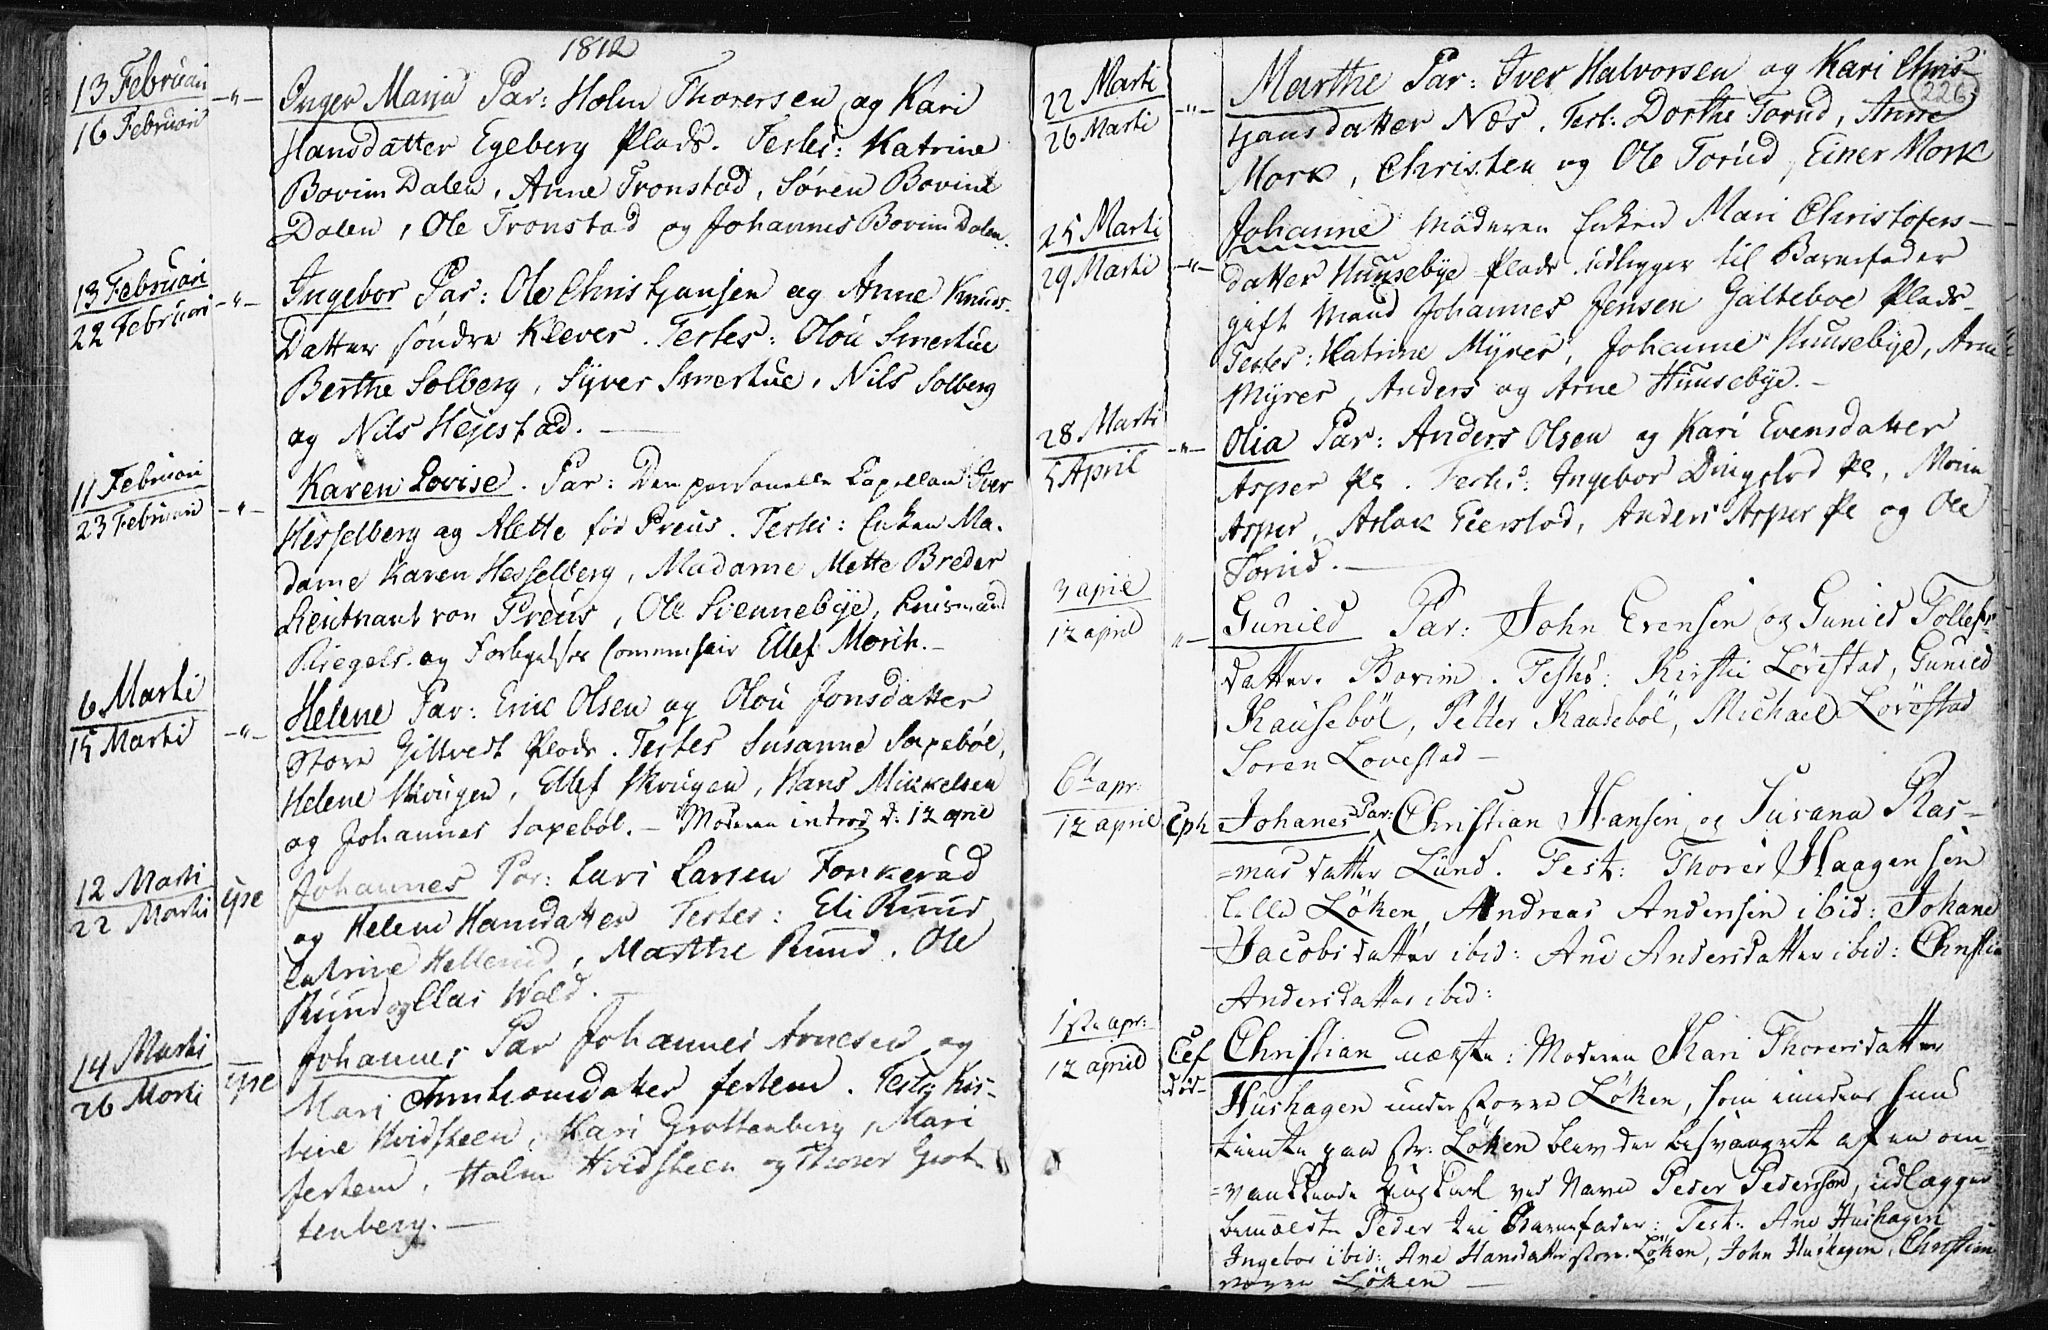 1812
13 Februari
16 Februari
-"-
Inger Maria Par: Holm Thorersen og Kari
Hansdatter Egeberg Plads. Testes: Katrine
Bovim Dalen, Anne Tronstad, Søren Bovim
Dalen, Ole Tronstad og Johannes Bovim Dalen.
13 Februari
22 Februari
-"-
Ingebor Par: Ole Christjansen og Anne Knuds-
Datter søndre Klever. Testes: Olou Smertue
Berthe Solberg, Syver Smertue, Nils Solberg
og Nils Hejestad.
11 Februari
23 Februari
-"-
Karen Lovise. Par: Den personelle Capellan Iver
Hesselberg og Alette fød Preus. Testes: Enken Ma-
dame Karen Hesselberg, Madame Mette Breder
Lieutnant von Preus, Ole Svennebye,
og Commissair Ellef Morth.
6 Marti
15 Marti
-"-
Helene Par: Eric Olsen og Olou Jonsdatter
Store Gittvedt Plads. Testes Susanne Saxebøl,
Helene Skrugen, Ellef Skrugen, Hans Mikkelsen
og Johannes Saxebøl. - Moderen introd d: 12 april
12 Marti
22 Marti
ipse
Johannes Par: Lars Larsen Fonkerud
og Helene Hansdatter Testes: Eli Ruud
Catrine Hellerud, Marthe Ruud. Ole
Ruud og Claus Wold.
14 Marti
26 Marti
ipse
Johannes Par Johannes Arnesen og
Mari Testes Kis-
tine Hvidsteen, Kari Grottenberg, Mari
Holm Hvidsteen og Thorer Grot
tenberg.
226
22 Marti
26 Marti
-"-
Marthe Par: Iver Halvorsen og Kari Chris-
tjansdatter Næs. Test: Dorthe Torud, Anne
Mork, Christen og Ole Torud, Einer Mork
25 Marti
29 Marti
-"-
Johanne Moderen Enken Mari Christofers-
datter Huusebye Plads udlegger til Barnefader
gift Mand Johannes Jensen Galteboe Plads-
Testes: Katrine Myrer, Johanne Huusebye, Arne
Myrer, Anders og Arne Huusebye.
28 Marti
5 April
-"-
Olia Par: Anders Olsen og Kari Evensdatter
Asper Pl. Testes: Ingebor Dingstad Pl, Maria
Asper, Aslak Fierstad, Anders Asper Pl og Ole
Torud.
3 april
12 april
"-
Gunild Par: John Evensen og Gunild Tollefs-
datter Bovim. Testes: Kirstie Løvestad, Gunild
Kausebøl, Petter Kaudebøl, Michael Løvestad
Søren Lovestad
6te apr:
12 april
Eph
Johanes Par: Christian Hansen og Susana Ras-
=mus datter Lund. Test: Thorer Haagensen
Lille Løken, Andreas Andersen ibid: Johane
Jacobsdatter ibid: Ane Andersdatter ibid: Christie
Andersdatter ibid:
1ste apr:
12 april
død
Christian uægte: Moderen Kari Thorersdatter
Hushagen under store Løken, som imedens hun
tiente paa str: Løken blev der besvangret af en om-
=vankkende Karl ved Navn Peder Pedersen, udlægger
bemældte Peder til Barnefader: Test: Ane Hushagen
Ingebor ibid: Ane Hansdatter store Løken, John Hushagen, Christian
Løken